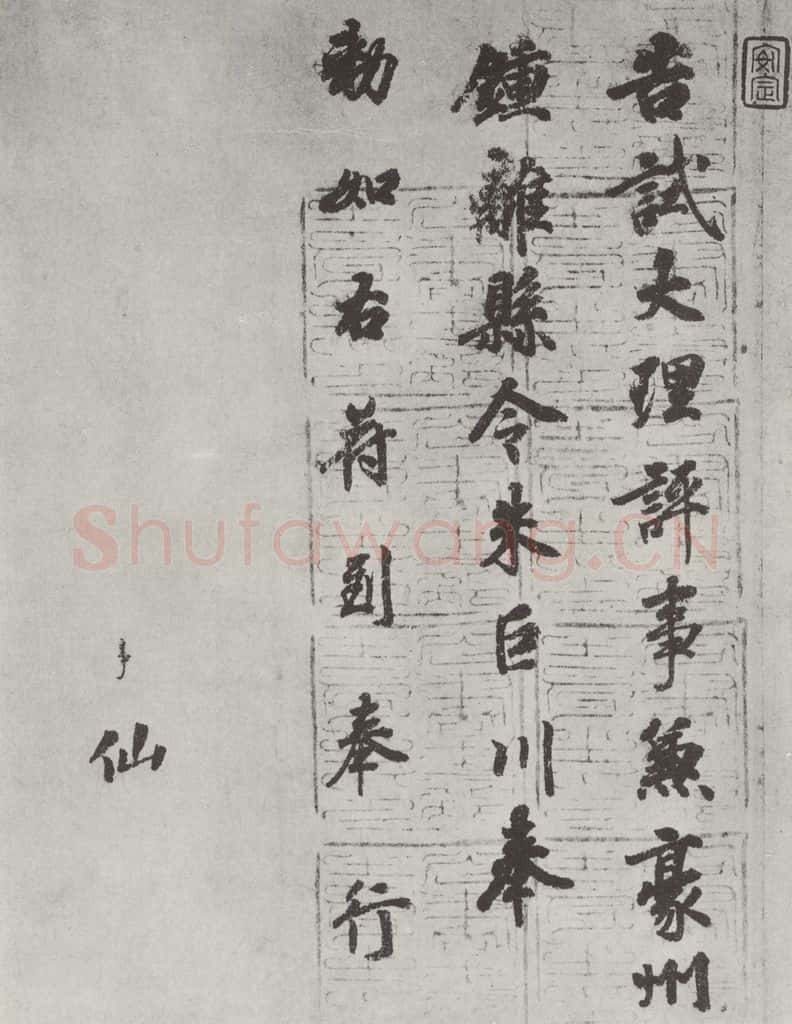 告試大理評事兼豪州
鍾離縣令朱巨川奉
勅如右符到奉行
仙
安定
Shufawang.CN